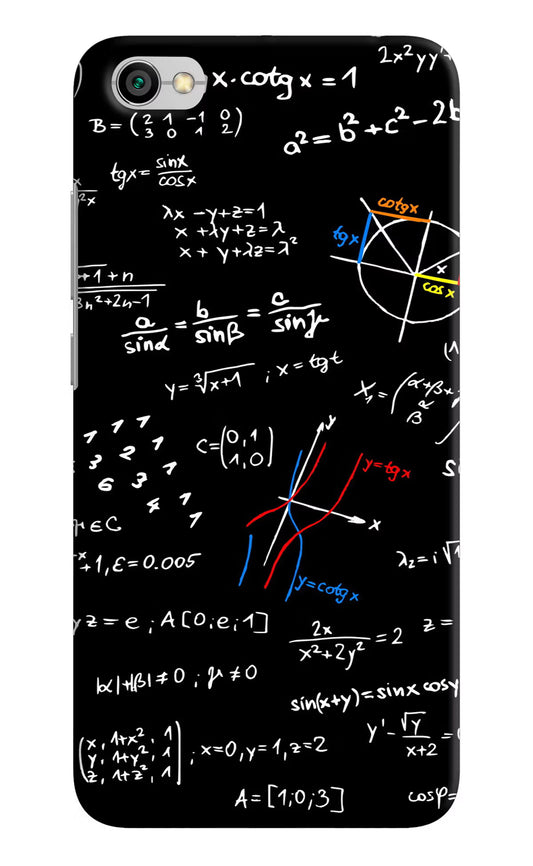 x·cotg x = 1
2x²yy'
B = (2 1 -1 0
3 0 1 2)
a² = b² + c² - 2b
tgx = sinx
cosx
2x
λx -y+z=1
x +λy+z=λ
x + y+λz=λ²
cotgx
tgx
x
cos x
+1+n
3n²+2n-1
a/sinα = b/sinβ = c/sinγ
y = ∛x+1 ; x = tgt
X₁ = (α+β+
β
1 1 1
3 2 1
6 3 1
4 1
1
C=(0,1
1,0)
y
y=tgx
x
y=cotgx
∈C
+1, ε = 0.005
λ₂ = i√1
yz = e ; A[0;e;1]
2x
x²+2y² = 2
z =
|α|+|β| ≠ 0 ; γ ≠ 0
sin(x+y)=sinx cosy
(x, 1+x², 1
y, 1+y², 1
z, 1+z², 1) ; x=0, y=1, z=2
y' - √y
x+2 =
A=[1;0;3]
cosφ=